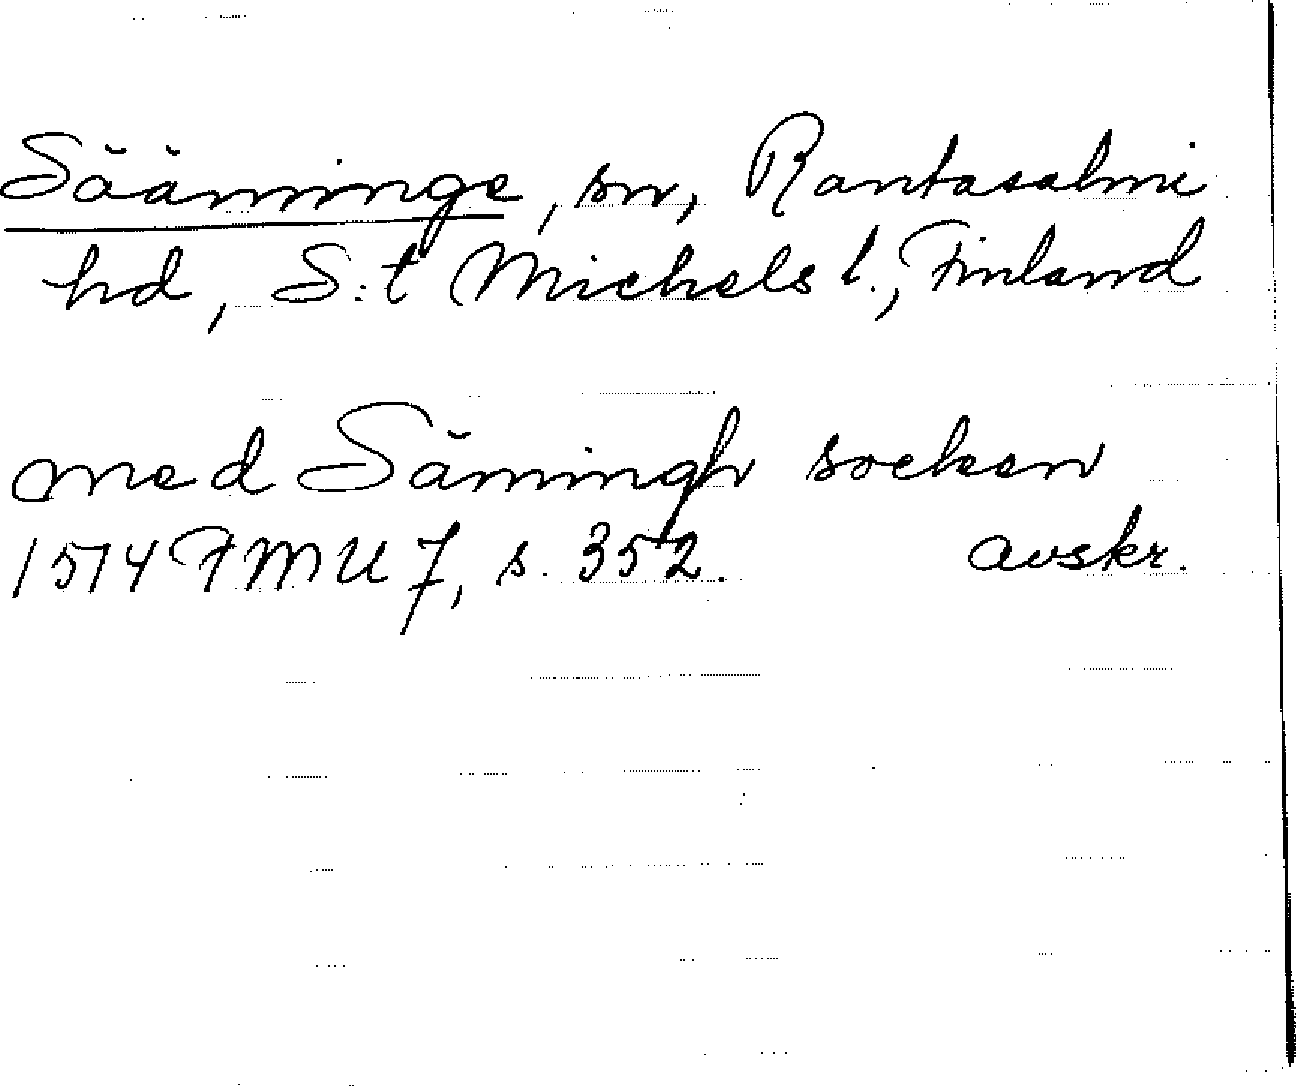 Sääminge, sn, Rantasalmi
hd, S:t Michels l., Finland
med Sämingh socken
1514 FMU 7, s. 352. avskr.